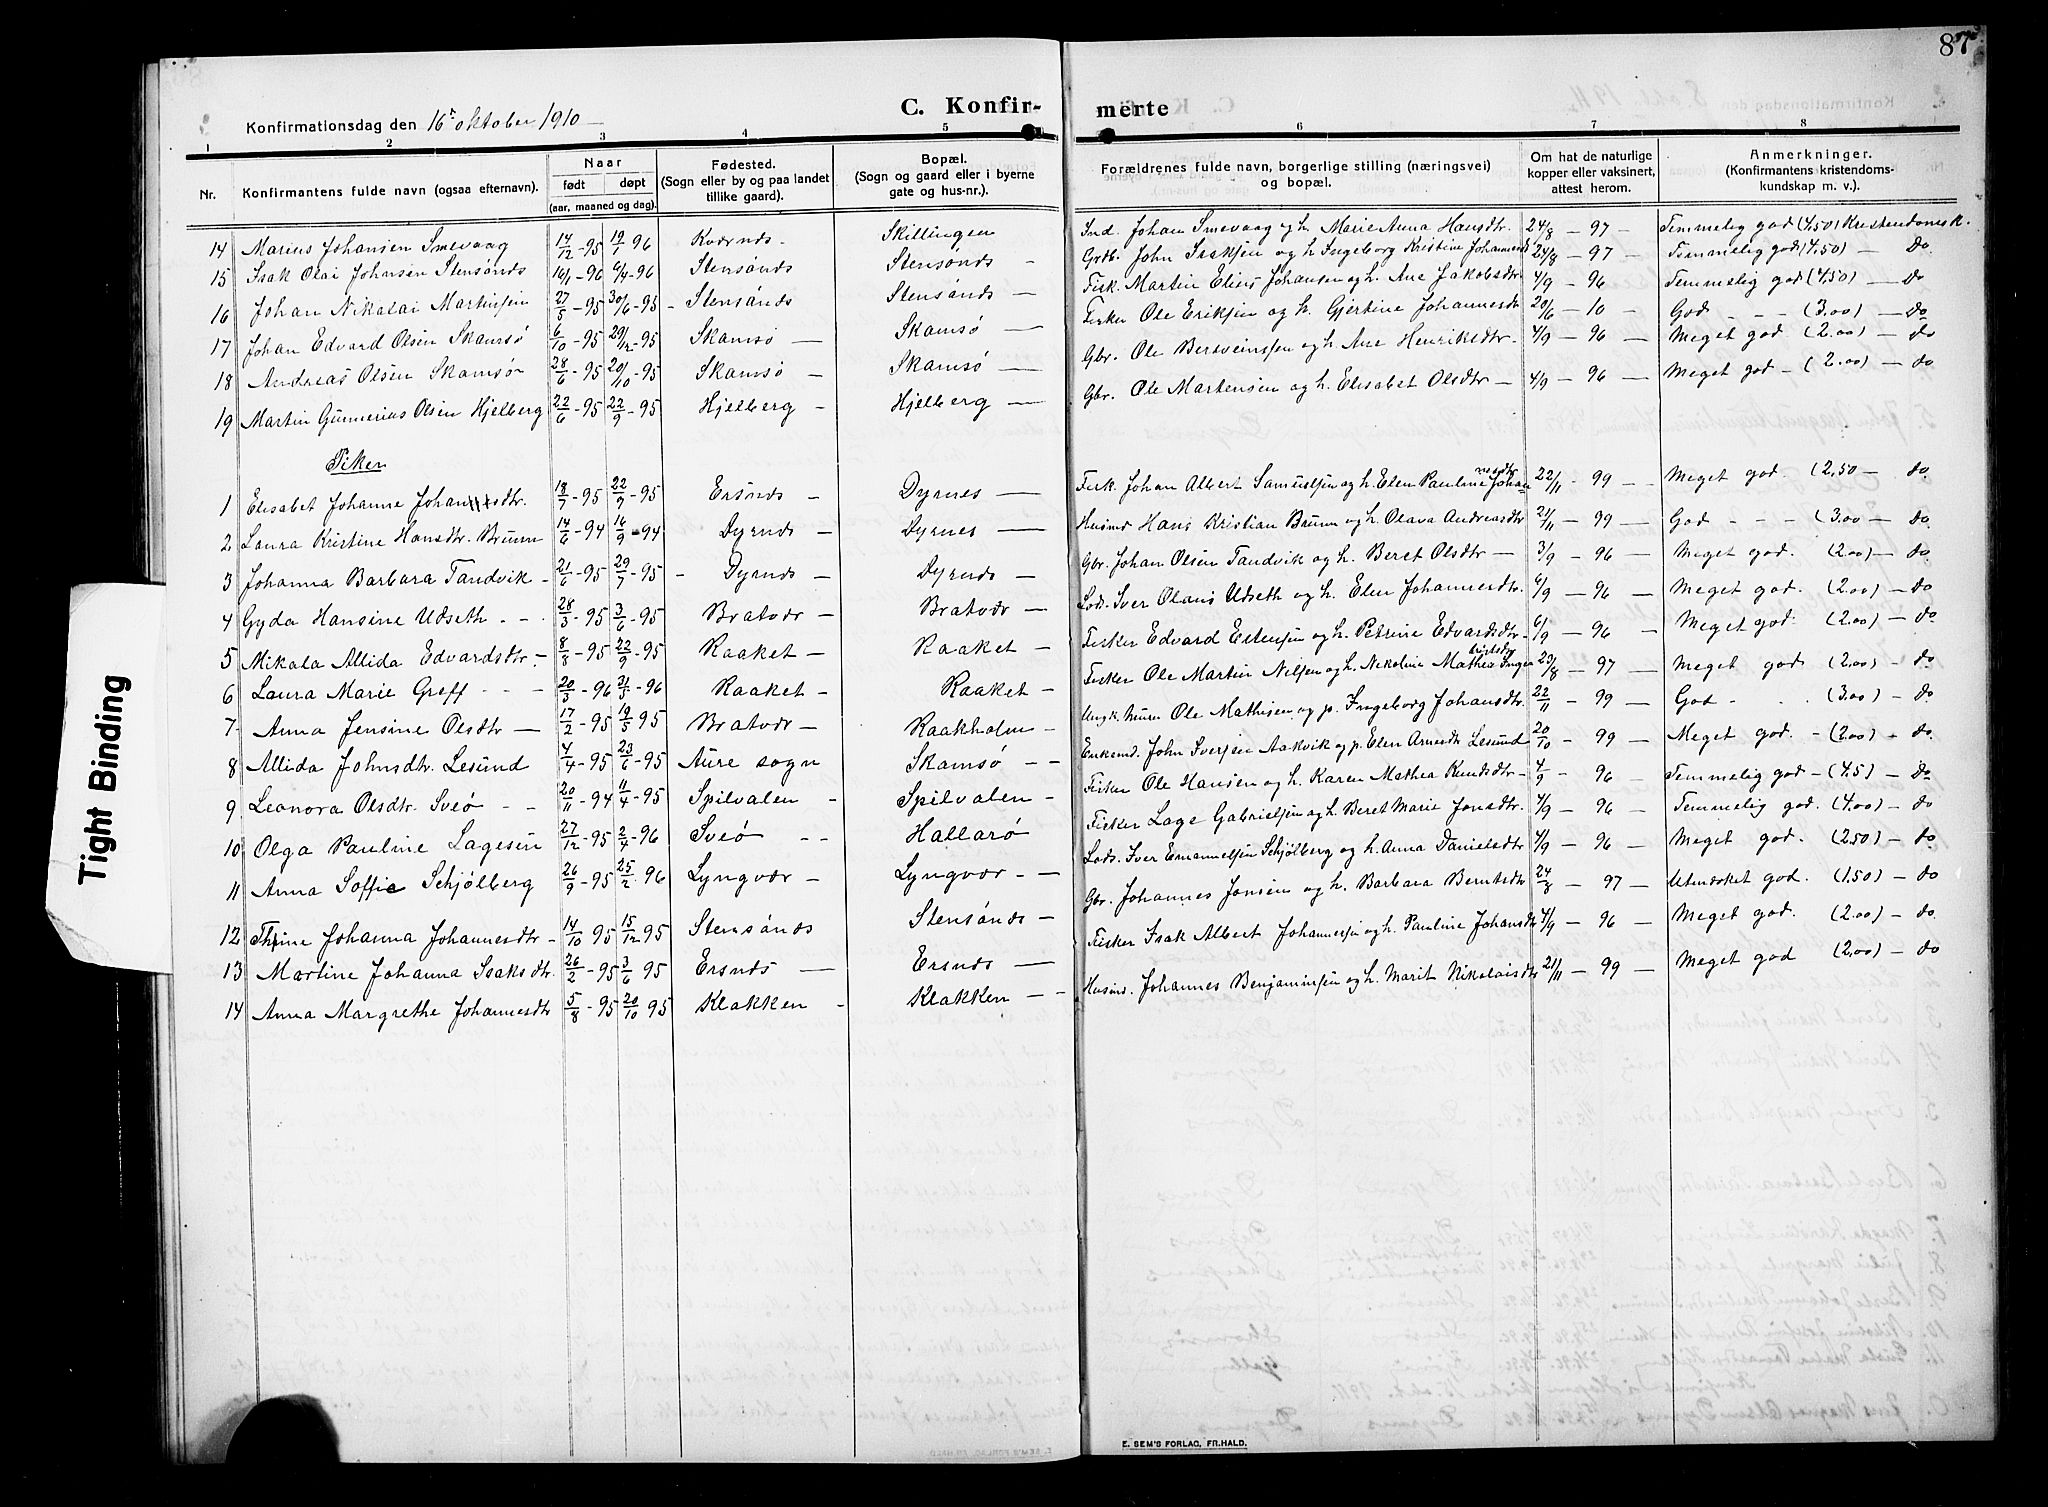 87
Konfirmationsdag den 16de oktober 1910
C. Konfir- merte
1 2 3 4 5 6 7 8
Nr. Konfirmantens fulde navn (ogsaa efternavn). Naar født døpt (aar, maaned og dag). Fødested. (Sogn eller by og paa landet tillike gaard). Bopæl. (Sogn og gaard eller i byerne gate og hus-nr.). Forældrenes fulde navn, borgerlige stilling (næringsvei) og bopæl. Om hat de naturlige kopper eller vaksinert, attest herom. Anmerkninger. (Konfirmantens kristendoms-kundskap m. v.).
14 Marius Johansen Smevaag 14/12-95 19/7 96 Kvernes - Skillingen Ind. Johan Smevaag og h. Marie Anna Hansdtr. 24/8 - 97 - Temmelig god (4,50) Kristendomsk.
15 Isak Olai Johnsen Stensønds 16/1-96 6/4-96 Stensønds Stensønds - Grdb. John Isaksen og h. Ingeborg Kristine Johannesd 24/8 - 97 - Temmelig god (4,50) - Do
16 Johan Nikolai Martinsen 27/5-95 30/6-95 - Stensønds Stensønds - Fisk. Martin Elias Johansen og h. Ane Jakobsdtr. 4/9 - 96 Temmelig god (4,50) - Do
17 Johan Edvard Olsen Skamsø 6/10-95 29/12-95 Skamsø - Skamsø - Fisker Ole Eriksen og h. Gjertine Johannesdtr 20/6 - 10 - God - - (3.00) - Do
18 Andreas Olsen Skamsø 28/6-95 20/10-95 Skamsø - Skamsø - Gbr. Ole Bersveinsen og h. Ane Henriksdtr. 4/9 - 96 - Meget god (2.00) - do
19 Martin Gunnerius Olsen Hjelberg 22/6-95 22/9-95 Hjelberg - Hjelberg - Gbr. Ole Martensen og h. Elisabet Olsdtr - 4/9 - 96 - Meget god - (2.00) - do
Piker
1 Elisabet Johanne Johansdtr. 18/7-95 22/9-95 Ersnds - Dyrnes - Fisk. Johan Albert Samuelsen og h. Elen Pauline Johannesdtr 22/11 - 99 - Meget god (2,50 - do
2 Laura Kristine Hansdtr. Bruun 14/6-94 16/9-94 Dyrnds - Dyrnes - Husmd Hans Kristian Bruun og h. Olava Andreasdtr 21/11 - 99 - God - - - (3.00 - do
3 Johanna Barbara Tandvik - 21/6-95 29/7-95 - Dyrnds - Dyrnds - Gbr. Johan Olsen Tandvik og h. Beret Olsdtr - 3/9 - 96 - Meget god. (2.00) - do
4 Gyda Hansine Udseth - - 28/3-95 3/6-95 Bratvær - Bratvær - Lods. Iver Olaus Udseth og h. Elen Johannesdtr. 6/9 - 96 - Meget god. (2.00) - do
5 Mikala Allida Edvardsdtr. - 8/8-95 22/9-95 Raaket - Raaket - Fisker Edvard Estensen og h. Petrine Edvardsdtr 6/9 - 96 - Meget god. (2.00) - do
6 Laura Marie Greff - - - 20/3-96 31/5-96 Raaket - Raaket - Fisker Ole Martin Nilsen og h. Nikoline Mathea 23/8 - 97 - Meget god (2.00) - do
7 Anna Jensine Olsdtr - 17/2-95 19/5 95 Bratvær - Raakholm - Ungk. Ole Mathisen og p. Ingeborg Johansdtr. 22/11 - 99 - God - - (3.00) - do
8 Allida Johnsdtr. Lesund 4/4-95 23/6-95 Aure sogn Skamsø - - Enkemd. John Iversen Aakvik og p. Elen Arnesdtr Lesund 20/10 - 99 - Meget god. - (2.00) - do
9 Leonora Olsdtr. Sveø - - 20/11-94 11/4-95 Spilvalen - Spilvalen - Fisker Ole Hansen og h. Karen Mathea Knudsdtr - 4/9 - 96 - Temmelig god - (4.5) - Do
10 Olga Pauline Lagesen 27/12-95 2/4-96 Sveø - - Hallarø Fisker Lage Gabrielsen og h. Beret Marie Jonsdtr. 4/9 - 96 Temmelig god. (4.00) - do
11 Anna Soffie Schjølberg 26/9-95 25/2 96 Lyngvær - Lyngvær - - Lods. Iver Emanuelsen Schjølberg og h. Anna Danielsdtr 4/9 - 96 - Meget god. (2.50) - do
12 Thrine Johanna Johannesdtr - 14/10 95 15/12 95 Stensønds Stensønds - Gbr. Johannes Jonsen og h. Barbara Berntsdtr 24/8 - 97 - Utmerket god. (1.50) - do
13 Martine Johanna Isaksdtr. 26/2-95 3/6 95 Ersnds - Ersnds - Fisker Isak Albert Johannesen og h. Pauline Johansdtr 4/9 - 96 - Meget god. (2.00) - do
14 Anna Margrethe Johannesdtr 5/8-95 20/10 95 Klakken - Klakken - - Husmd. Johannes Benjaminsen og h. Marit Nikolaisdtr 21/11 - 99 - Meget god (2.00) - do
Tight Binding
E. SEM'S FORLAG, FR.HALD.